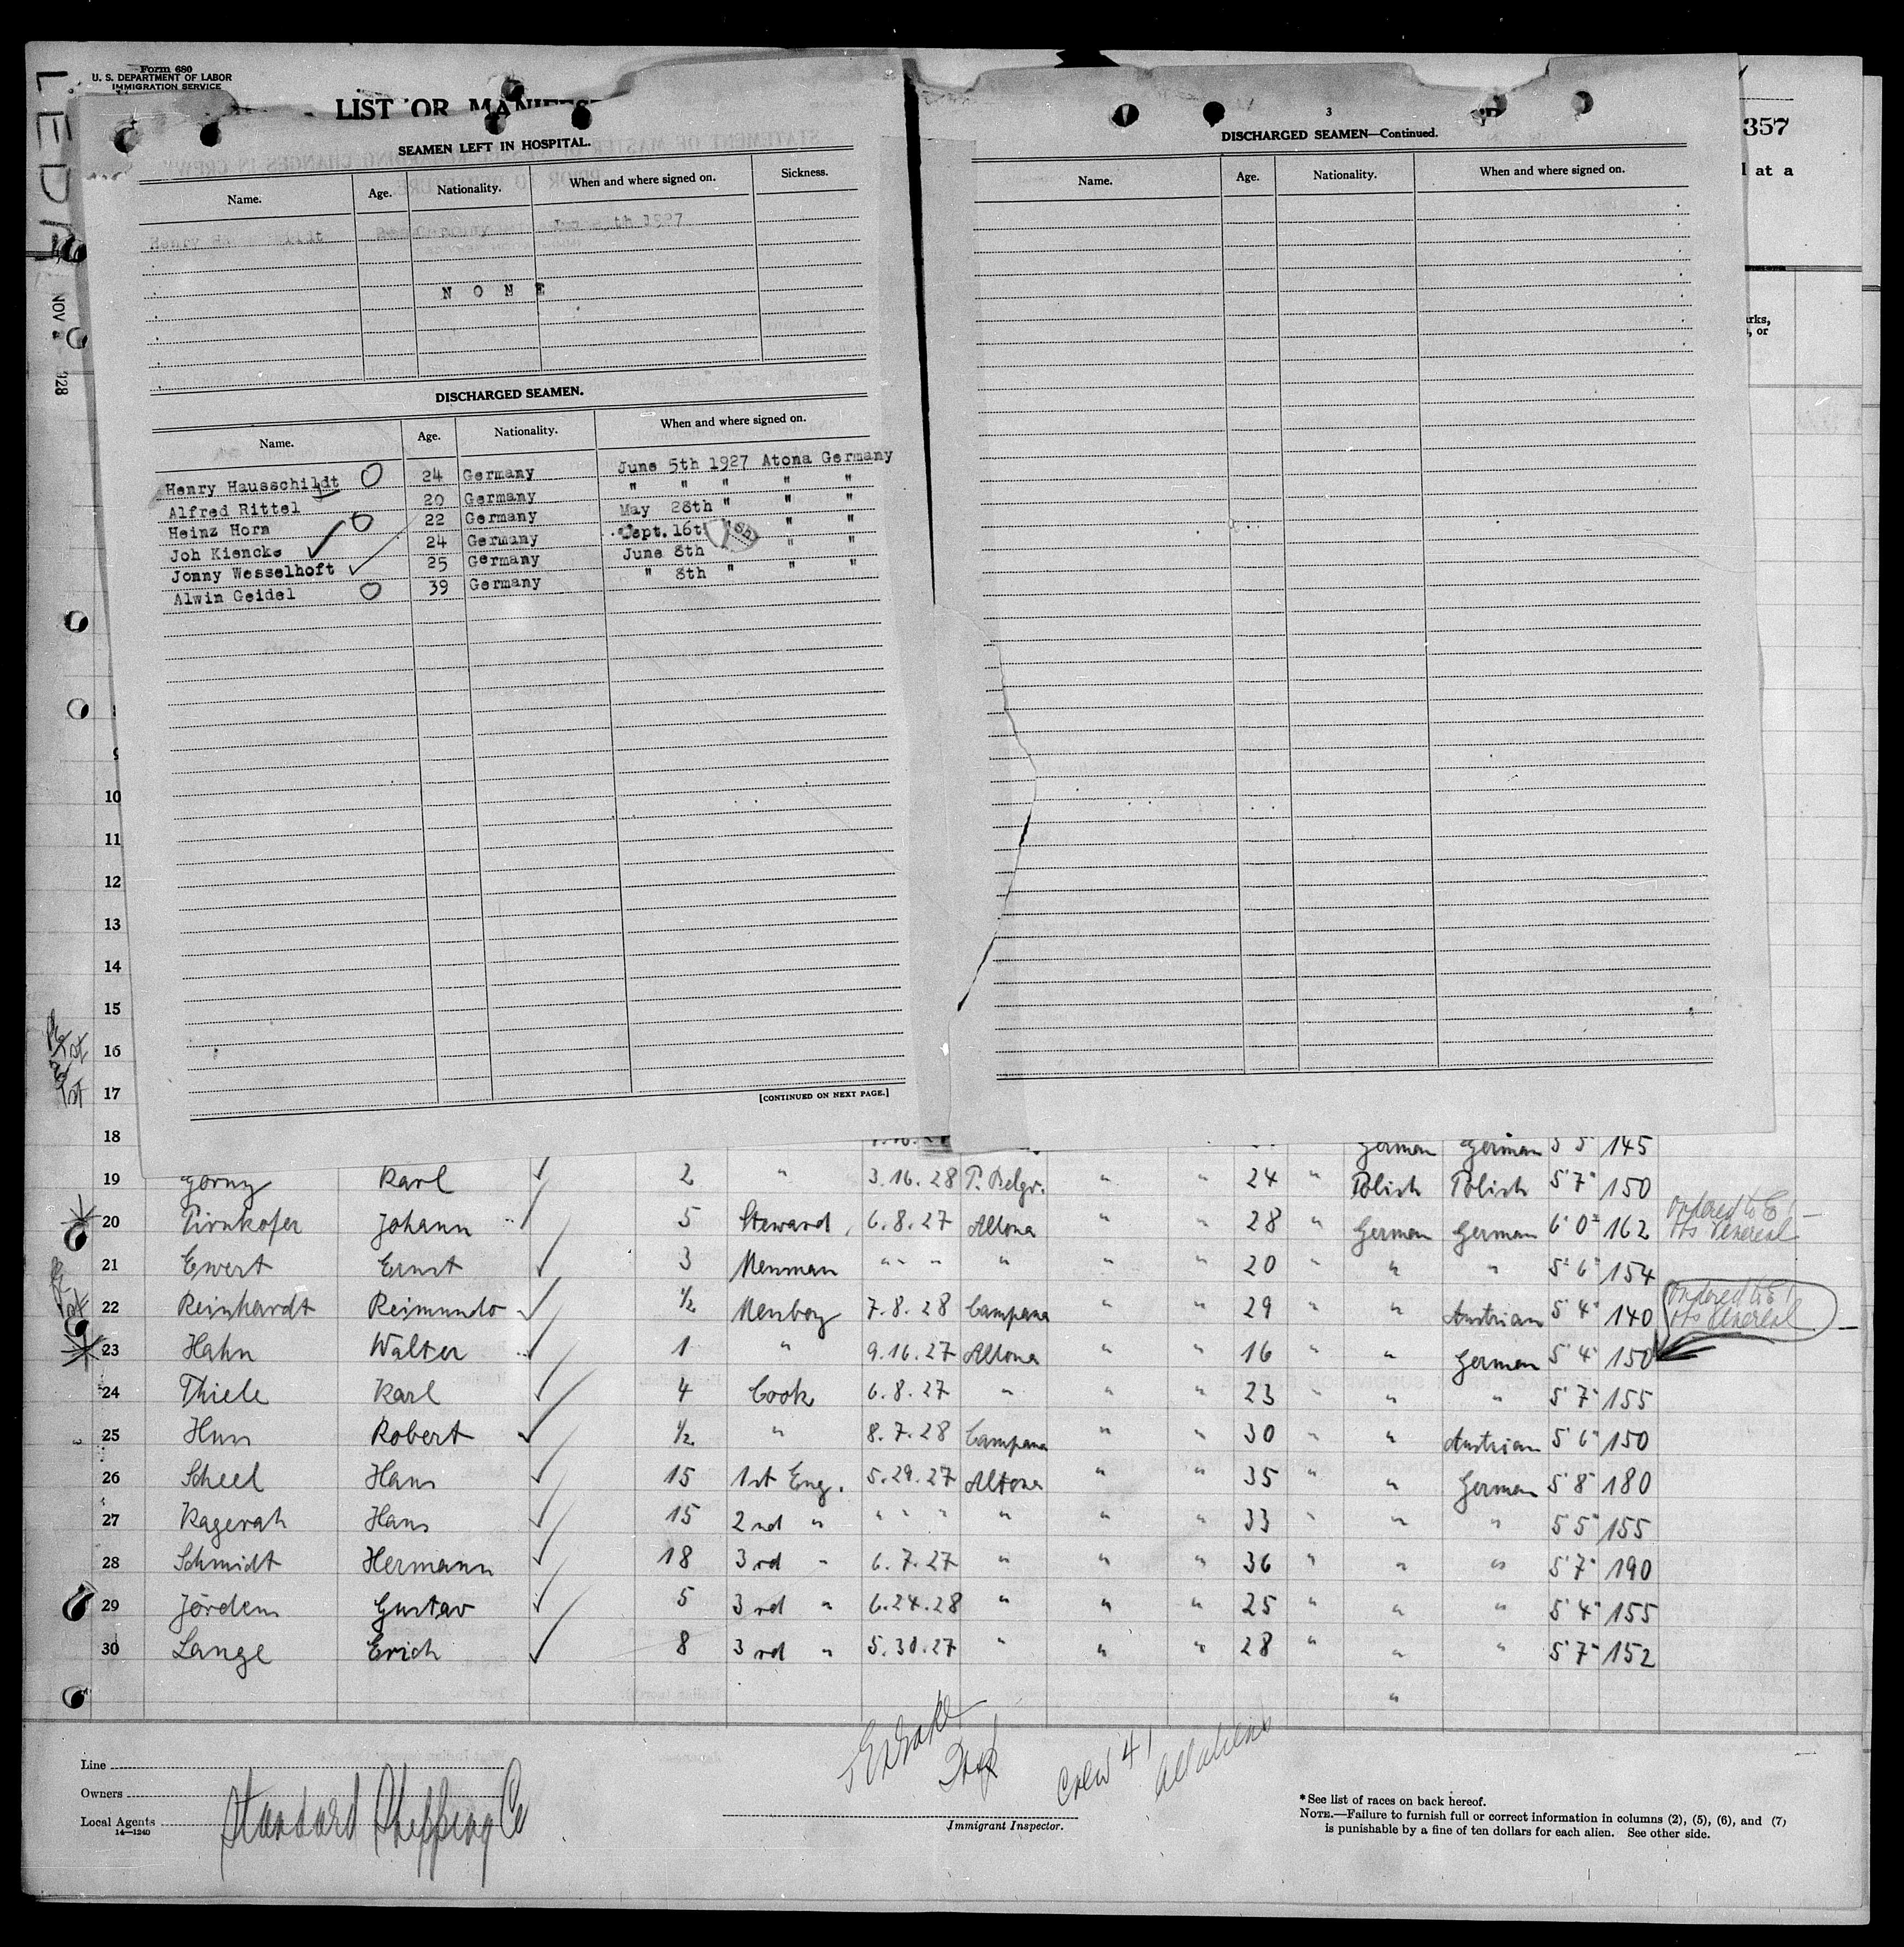 Form 680
U. S. DEPARTMENT OF LABOR
IMMIGRATION SERVICE
LIST OR
357
l at a
rks,
, or
NOV 928
SEAMEN LEFT IN HOSPITAL.
Name. Age. Nationality. When and where signed on. Sickness.
Henry Germany 1927
N O N E
DISCHARGED SEAMEN.
Name. Age. Nationality. When and where signed on.
Henry Hausschildt 24 Germany June 5th 1927 Atona Germany
Alfred Rittel 20 Germany " " " " "
Heinz Horn 22 Germany May 28th " " "
Joh Kiencke 24 Germany Sept. 16t " "
Jonny Wesselhoft 25 Germany June 8th " "
Alwin Geidel 39 Germany " 8th " " "
[CONTINUED ON NEXT PAGE.]
3
DISCHARGED SEAMEN—Continued.
Name. Age. Nationality. When and where signed on.
10
11
12
13
14
15
16
17
18 German German 5'5" 145
19 Gorny Karl 2 " 3.16.28 " " 24 " Polish Polish 5'7" 150
20 Pirnkofer Johann 5 Steward 6.8.27 Altona " " 28 " German German 6'0" 162 Ordered to
21 Ewert Ernst 3 Messman " " " " " " 20 " " " 5'6" 154
22 Reinhardt Reimundo 1/2 Messboy 7.8.28 Campana " " 29 " " Austrian 5'4" 140 Ordered to
23 Hahn Walter 1 " 9.16.27 Altona " " 16 " " German 5'4" 150
24 Thiele Karl 4 Cook 6.8.27 " " " 23 " " " 5'7" 155
25 Robert 1/2 " 8.7.28 Campana " " 30 " " Austrian 5'6" 150
26 Scheel Hans 15 1st Eng. 5.29.27 Altona " " 35 " " German 5'8" 180
27 Kagerah Hans 15 2nd " " " " " " " 33 " " " 5'5" 155
28 Schmidt Hermann 18 3rd " 6.7.27 " " " 36 " " " 5'7" 190
29 Jördens Gustav 5 3rd " 6.24.28 " " " 25 " " " 5'4" 155
30 Lange Erich 8 3rd " 5.30.27 " " " 28 " " " 5'7" 152
"
Crew 41
all aliens
Line
Owners
Local Agents Standard Shipping Co
14—1240
Immigrant Inspector.
*See list of races on back hereof.
NOTE.—Failure to furnish full or correct information in columns (2), (5), (6), and (7)
is punishable by a fine of ten dollars for each alien. See other side.